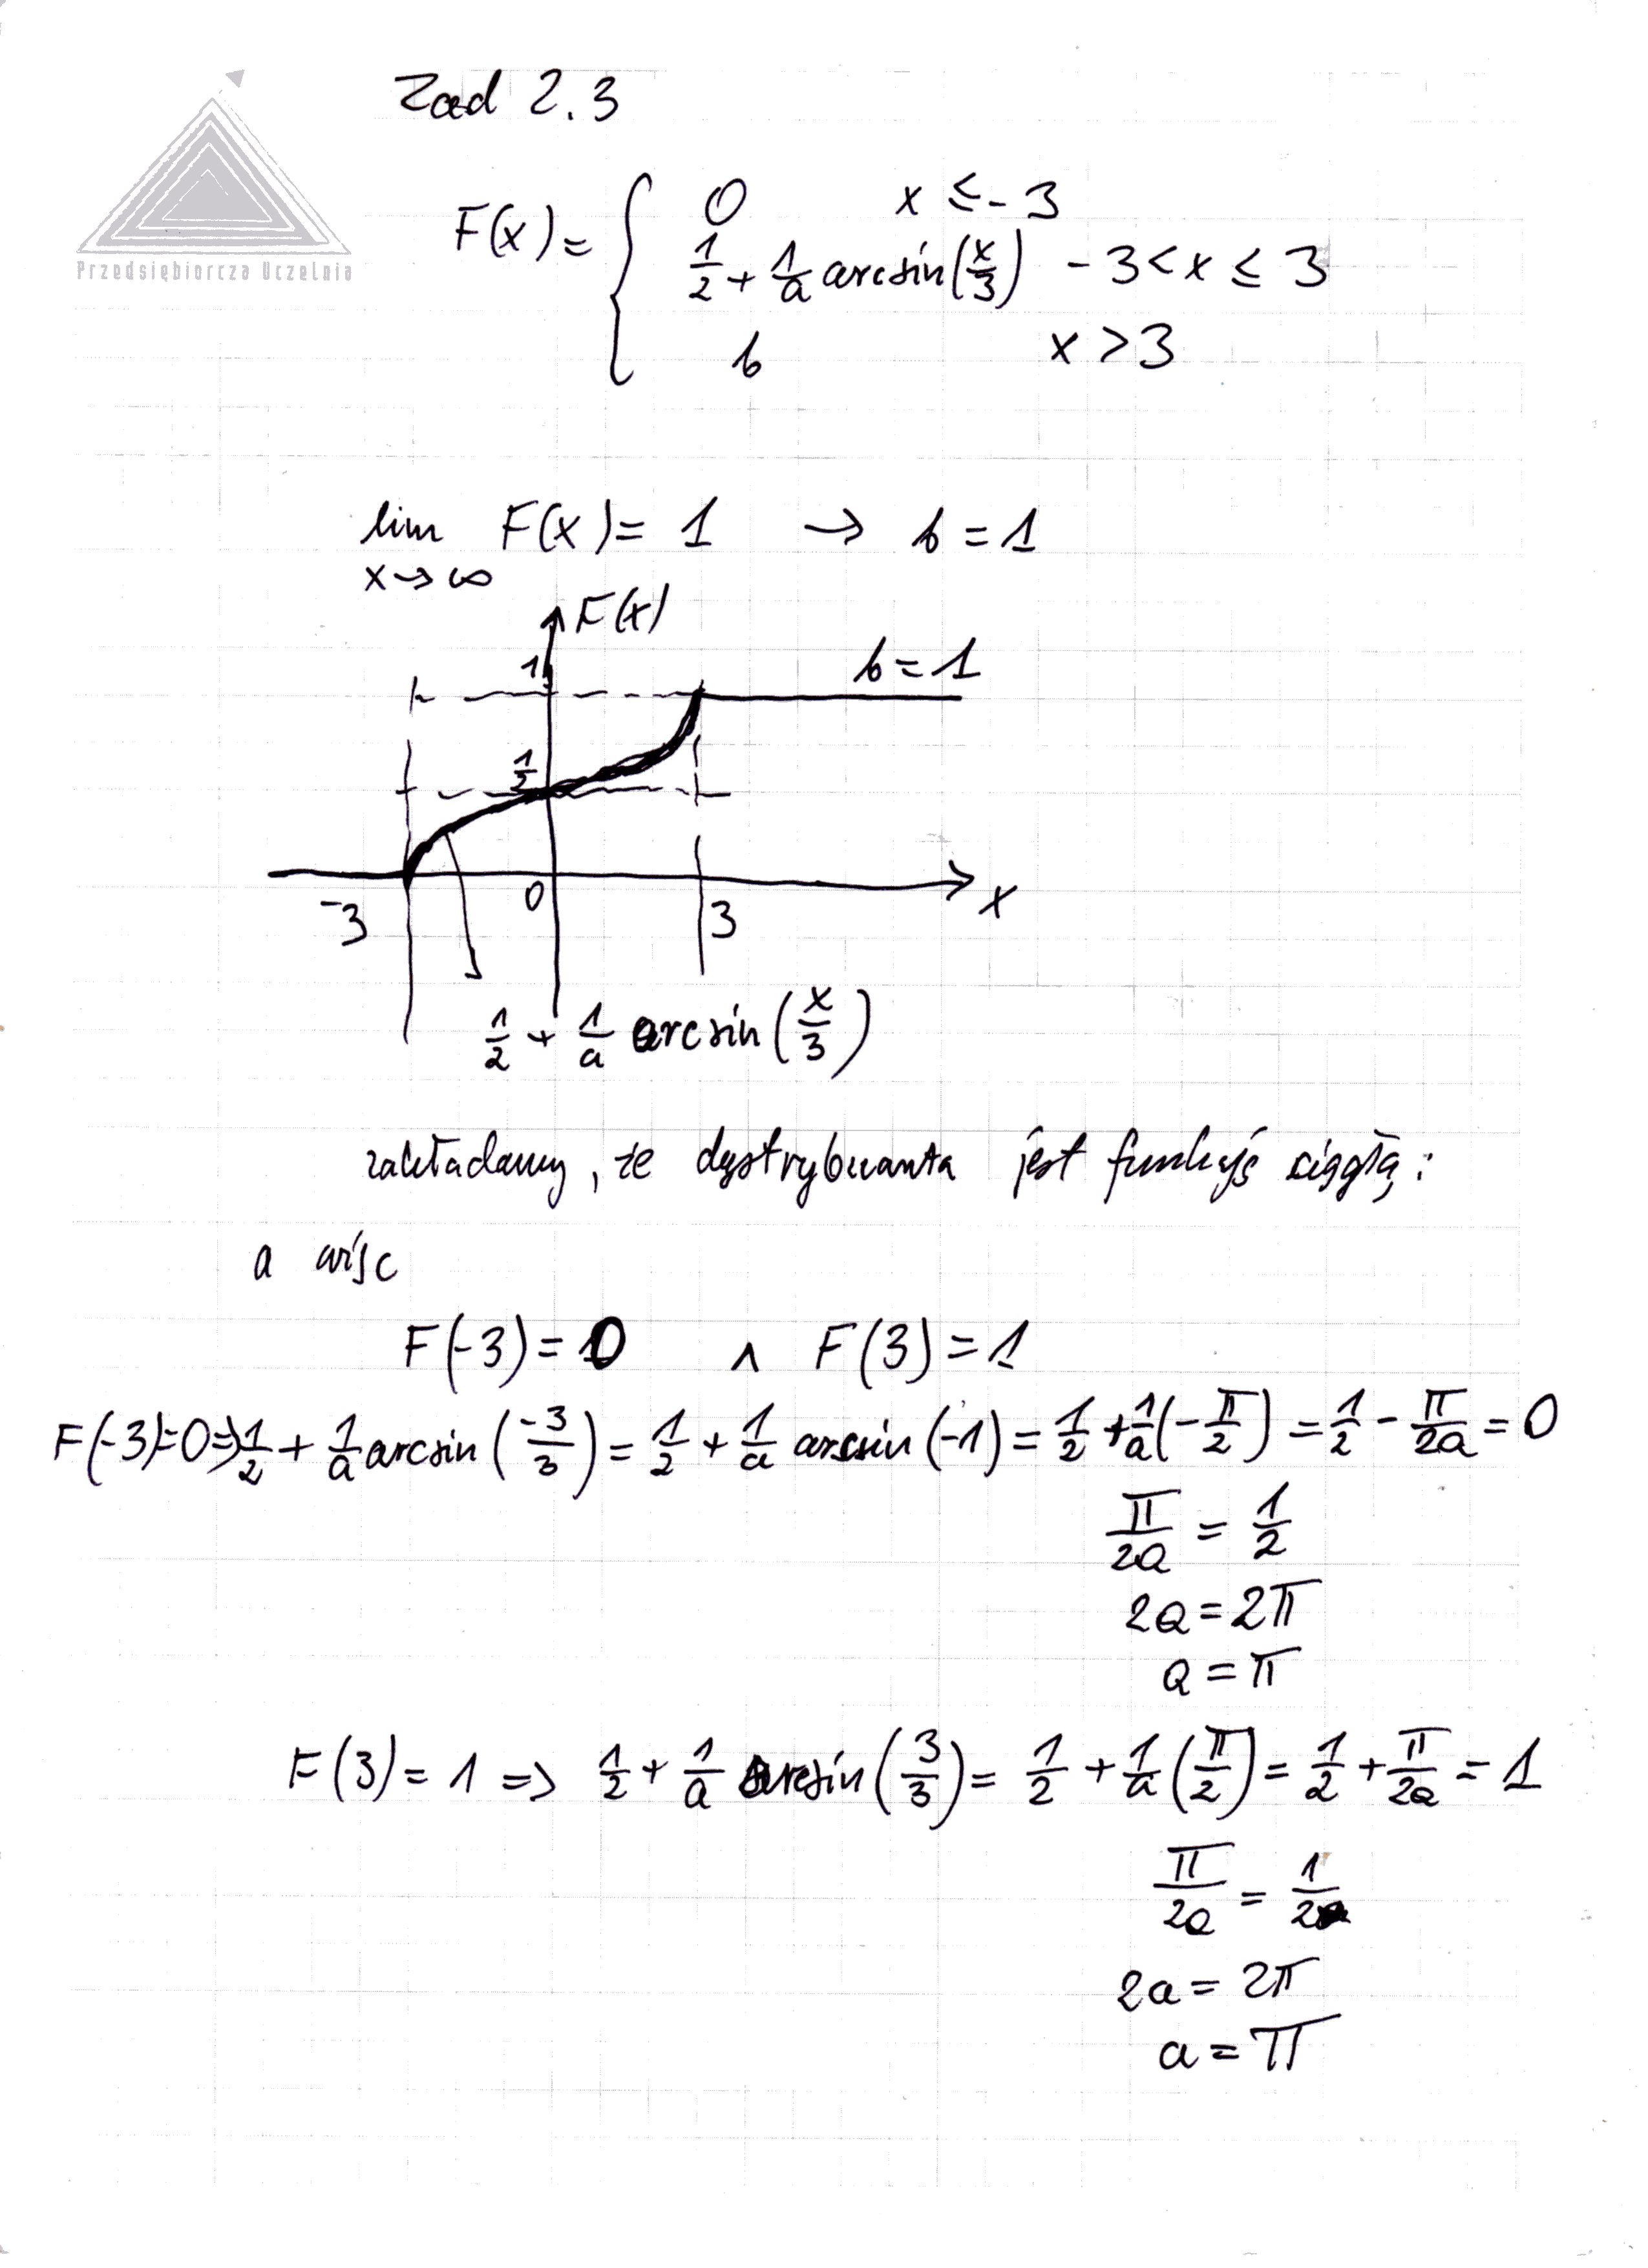 Zad 2.3
Przedsiębiorcza Uczelnia
F(x) = { 0 x ≤ -3
1/2 + 1/a arcsin(x/3) -3 < x ≤ 3
b x > 3
lim F(x) = 1 → b = 1
x→∞
F(x)
1
b = 1
1/2
-3 0 3 x
1/2 + 1/a arcsin(x/3)
zakładamy, że dystrybuanta jest funkcją ciągłą:
a więc
F(-3) = 0 ∧ F(3) = 1
F(-3)=0 => 1/2 + 1/a arcsin(-3/3) = 1/2 + 1/a arcsin(-1) = 1/2 + 1/a(-π/2) = 1/2 - π/2a = 0
π/2a = 1/2
2a = 2π
a = π
F(3) = 1 => 1/2 + 1/a arcsin(3/3) = 1/2 + 1/a(π/2) = 1/2 + π/2a = 1
π/2a = 1/2
2a = 2π
a = π